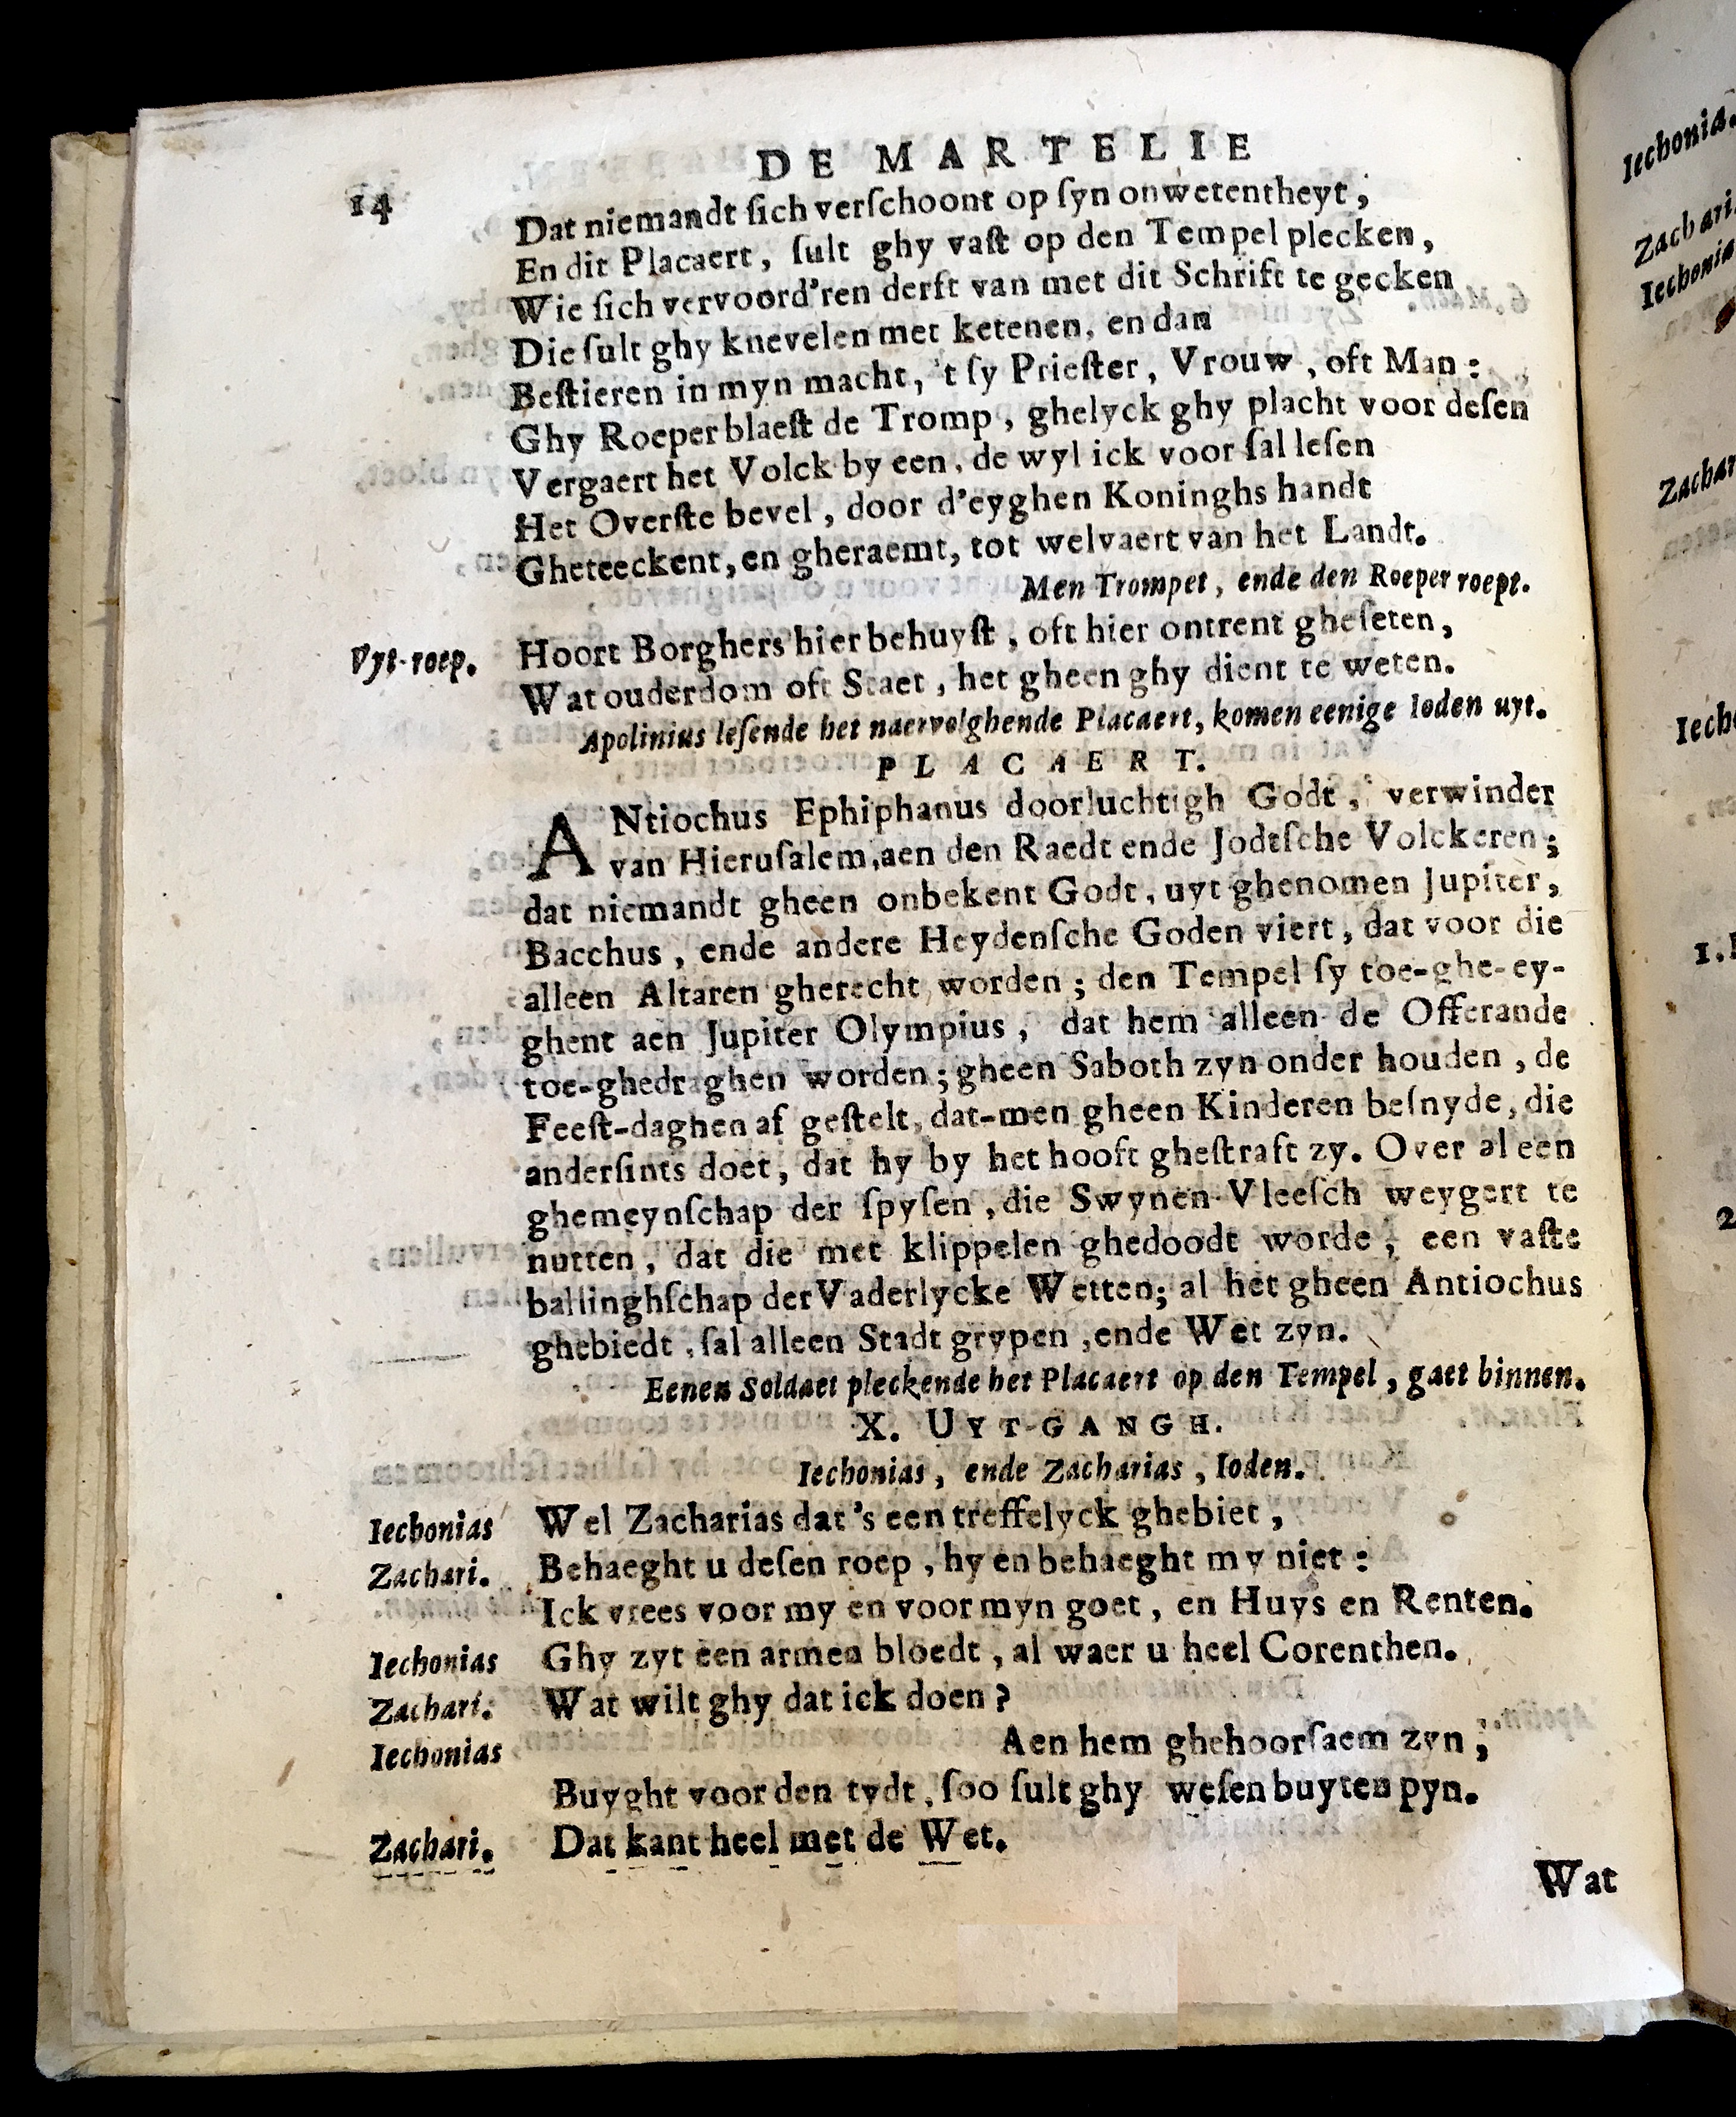 DE MARTELIE
14
Dat niemandt ſich verſchoont op ſyn onwetentheyt,
En dit Placaert, ſult ghy vaſt op den Tempel plecken,
Wie ſich vervoord'ren derft van met dit Schrift te gecken
Die ſult ghy knevelen met ketenen, en dan
Beſtieren in myn macht, 't ſy Prieſter, Vrouw, oft Man:
Ghy Roeper blaeſt de Tromp, ghelyck ghy placht voor deſen
Vergaert het Volck by een, de wyl ick voor ſal leſen
Het Overſte bevel, door d'eyghen Koninghs handt
Gheteeckent, en gheraemt, tot welvaert van het Landt.
Men Trompet, ende den Roeper roept.
Vyt-roep. Hoort Borghers hier behuyſt, oft hier ontrent gheſeten,
Wat ouderdom oft Staet, het gheen ghy dient te weten.
Apolinius leſende het naervolghende Placaert, komen eenige Ioden uyt.
PLACAERT.
ANtiochus Ephiphanus doorluchtigh Godt, verwinder
van Hieruſalem, aen den Raedt ende Jodtſche Volckeren;
dat niemandt gheen onbekent Godt, uyt ghenomen Jupiter,
Bacchus, ende andere Heydenſche Goden viert, dat voor die
alleen Altaren gherecht worden; den Tempel ſy toe-ghe-ey-
ghent aen Jupiter Olympius, dat hem alleen de Offerande
toe-ghedraghen worden; gheen Saboth zyn onder houden, de
Feeſt-daghen af geſtelt, dat-men gheen Kinderen beſnyde, die
anderſints doet, dat hy by het hooft gheſtraft zy. Over al een
ghemeynſchap der ſpyſen, die Swynen-Vleeſch weygert te
nutten, dat die met klippelen ghedoodt worde, een vaſte
ballinghſchap der Vaderlycke Wetten; al het gheen Antiochus
ghebiedt, ſal alleen Stadt grypen, ende Wet zyn.
Eenen Soldaet pleckende het Placaert op den Tempel, gaet binnen.
X. UYT-GANGH.
Iechonias, ende Zacharias, Ioden.
Iechonias Wel Zacharias dat's een treffelyck ghebiet,
Zachari. Behaeght u deſen roep, hy en behaeght my niet:
Ick vrees voor my en voor myn goet, en Huys en Renten.
Iechonias Ghy zyt een armen bloedt, al waer u heel Corenthen.
Zachari. Wat wilt ghy dat ick doen?
Iechonias Aen hem ghehoorſaem zyn;
Buyght voor den tydt, ſoo ſult ghy weſen buyten pyn.
Zachari. Dat kant heel met de Wet.
Wat
Iechonia.
Iechonia
1.
2